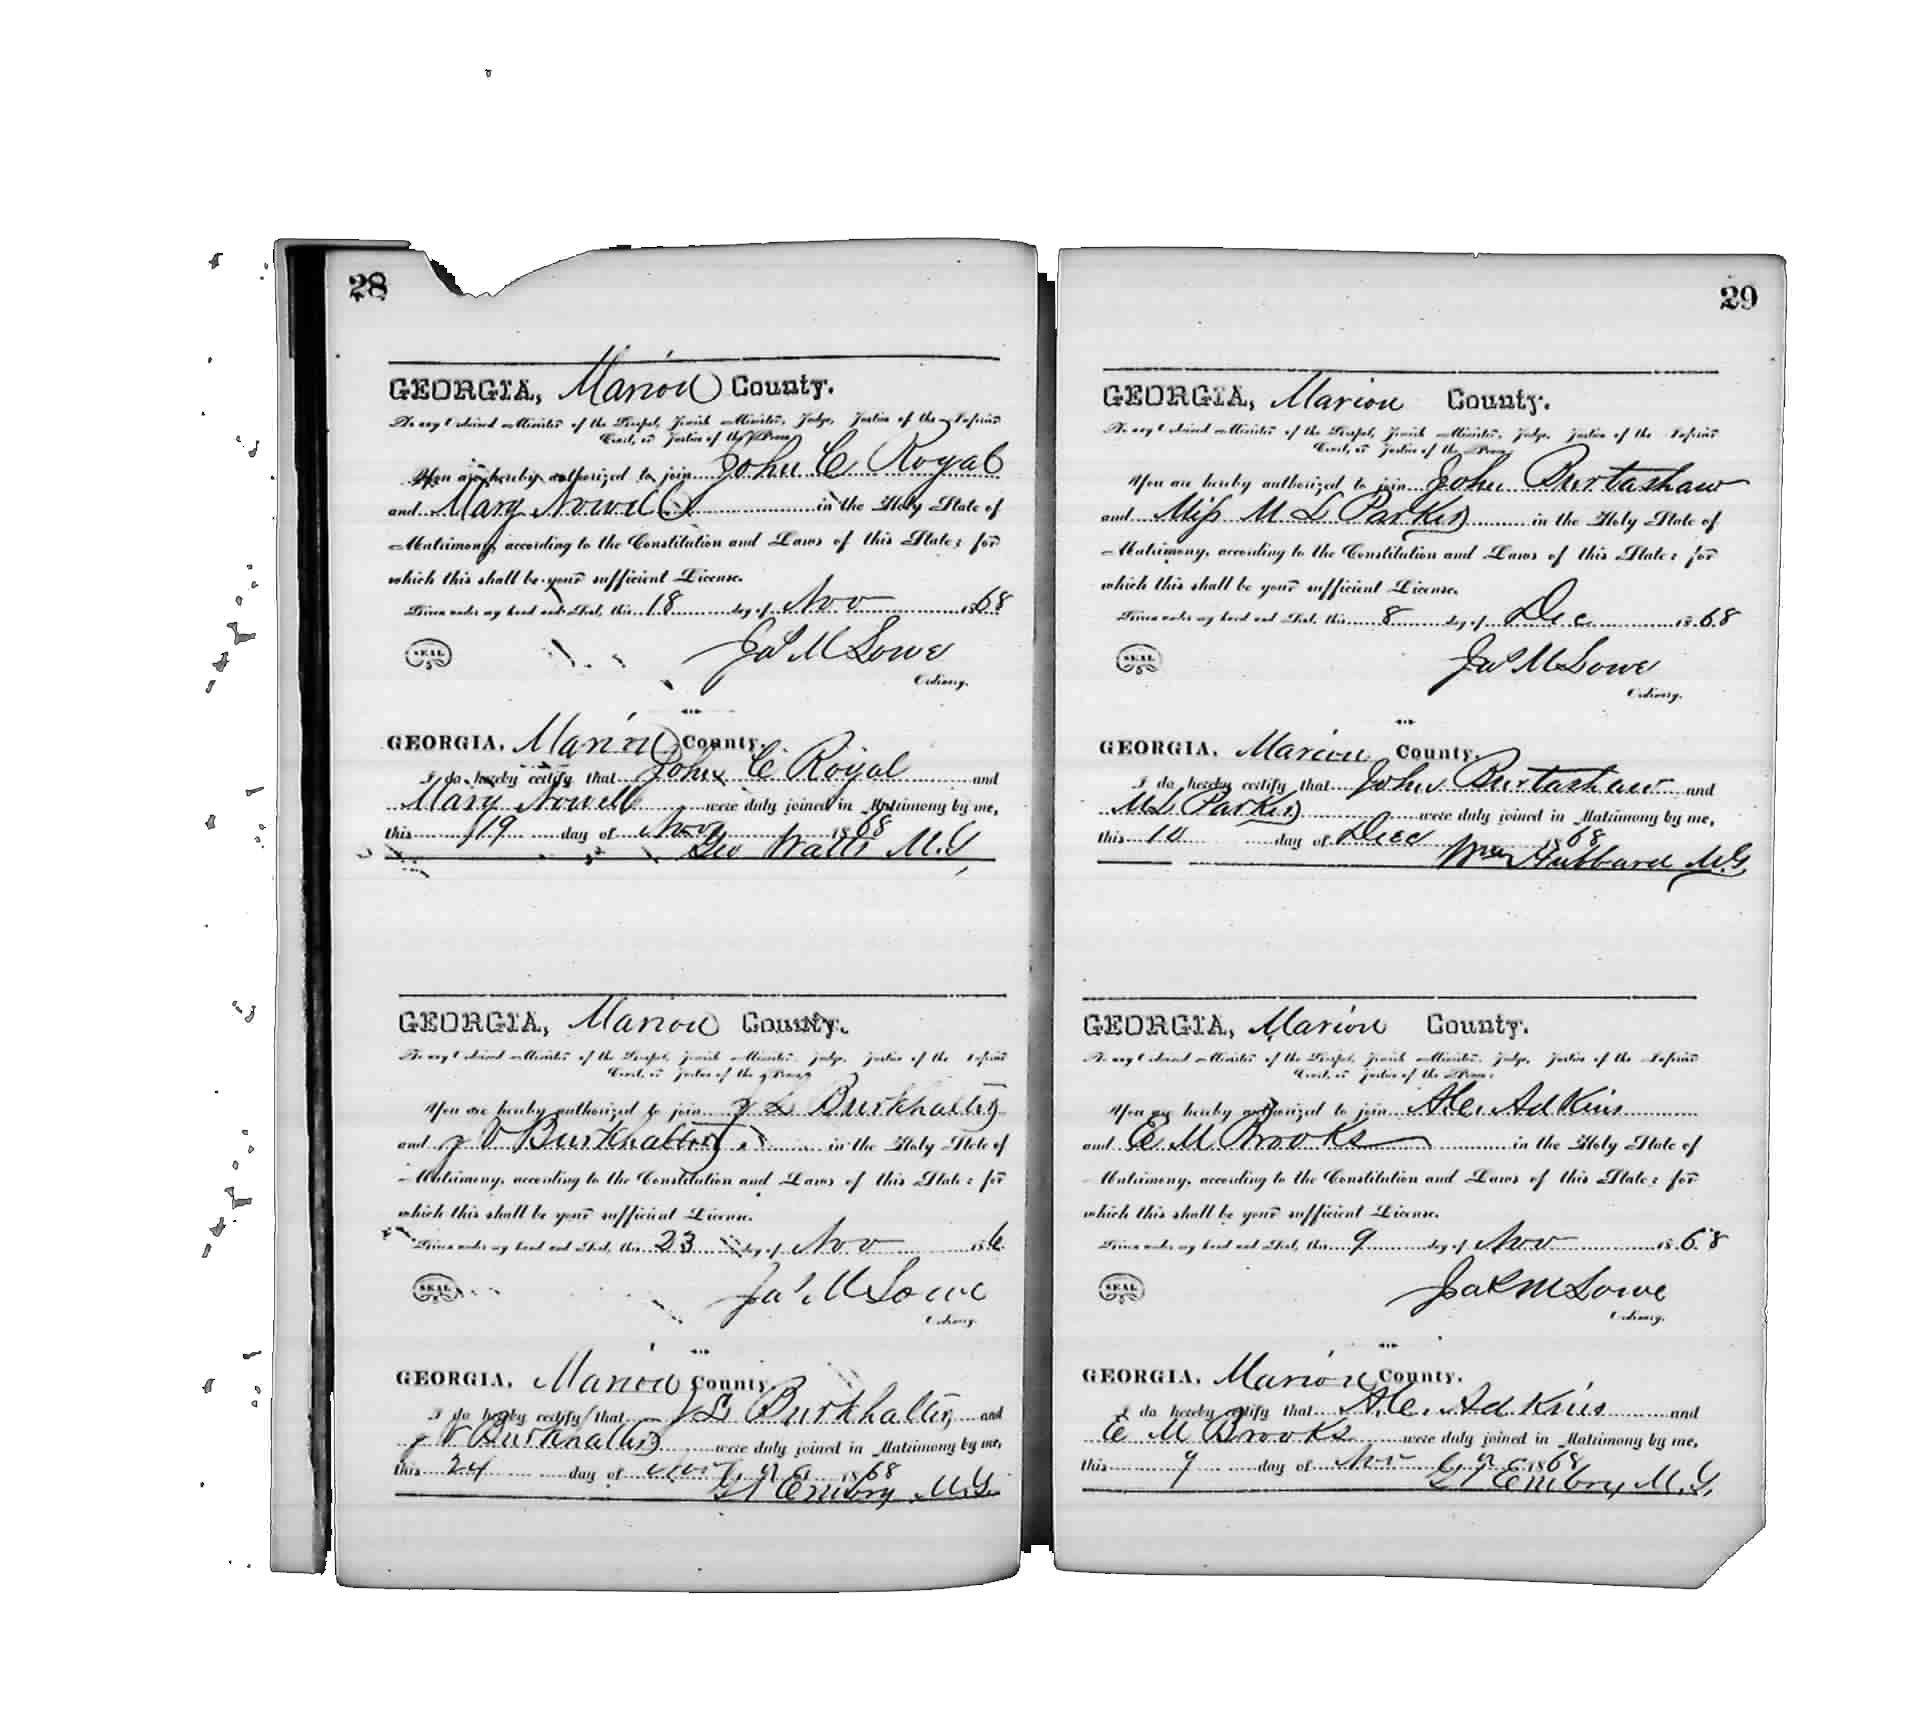 28
GEORGIA, Marion County.
To any Ordained Minister of the Gospel, Jewish Minister, Judge, Justice of the Inferior
Court, or Justice of the Peace:
You are hereby authorized to join John C Royal
and Mary Nowell in the Holy State of
Matrimony, according to the Constitution and Laws of this State; for
which this shall be your sufficient License.
Given under my hand and Seal, this 18 day of Nov 1868
SEAL Jas M Lowe
Ordinary.
GEORGIA, Marion County.
I do hereby certify that John C Royal and
Mary Nowell were duly joined in Matrimony by me,
this 19 day of Nov 1868
Geo Watts M.G
GEORGIA, Marion County.
To any Ordained Minister of the Gospel, Jewish Minister, Judge, Justice of the Inferior
Court, or Justice of the Peace:
You are hereby authorized to join J L Burkhalter
and J V Burkhalter in the Holy State of
Matrimony, according to the Constitution and Laws of this State; for
which this shall be your sufficient License.
Given under my hand and Seal, this 23 day of Nov 186
SEAL Jas M Lowe
Ordinary.
GEORGIA, Marion County.
I do hereby certify that J L Burkhalter and
J V Burkhalter were duly joined in Matrimony by me,
this 24 day of Nov 1868
Embry M.G.
29
GEORGIA, Marion County.
To any Ordained Minister of the Gospel, Jewish Minister, Judge, Justice of the Inferior
Court, or Justice of the Peace:
You are hereby authorized to join John Burtashaw
and Miss M L Parker in the Holy State of
Matrimony, according to the Constitution and Laws of this State; for
which this shall be your sufficient License.
Given under my hand and Seal, this 8 day of Dec 1868
SEAL Jas M Lowe
Ordinary.
GEORGIA, Marion County.
I do hereby certify that John Burtashaw and
M L Parker were duly joined in Matrimony by me,
this 10 day of Decd 1868
Wm Hubbard M.G.
GEORGIA, Marion County.
To any Ordained Minister of the Gospel, Jewish Minister, Judge, Justice of the Inferior
Court, or Justice of the Peace:
You are hereby authorized to join A.C. Adkins
and E M Brooks in the Holy State of
Matrimony, according to the Constitution and Laws of this State; for
which this shall be your sufficient License.
Given under my hand and Seal, this 9 day of Nov 1868
SEAL Jas M Lowe
Ordinary.
GEORGIA, Marion County.
I do hereby certify that A.C. Adkins and
E M Brooks were duly joined in Matrimony by me,
this 9 day of Nov 1868
Embry M.G.